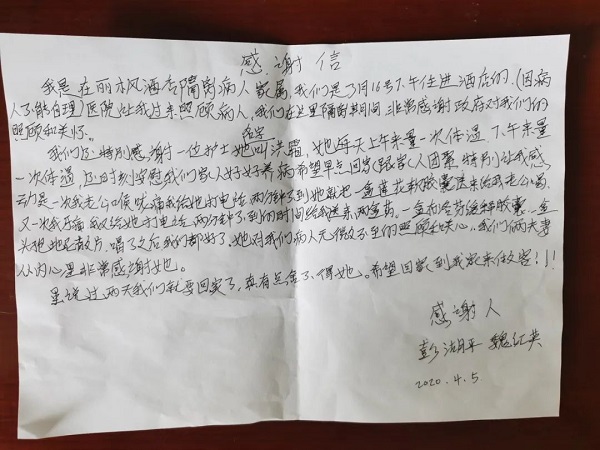 感谢信
我是在丽枫酒店隔离病人家属,我们是3月16号下午住进酒店的,(因病
人不能自理)医院让我过来照顾病人,我们在这里隔离期间非常感谢政府对我们的
照顾和关怀。
我们还特别感谢一位护士她叫洪霜,她每天上午来量一次体温,下午来量
一次体温,还时刻安慰我们家人好好养病希望早点回家(跟家人团聚)特别让我感
动是一次我老公喉咙痛我给她打电话,两分钟不到她就把一盒莲花清瘟胶囊送来给我老公喝,
又一次我牙痛我又给她打电话,两分钟不到的时间给我送来两盒药。一盒布洛芬缓释胶囊,一盒
头孢地尼散片,喝了之后我们都好了,她对我们病人无微不至的照顾和关心,我们俩夫妻
从内心里非常感谢她。
虽说过两天我们就要回家了,真有点舍不得她。希望回家(到我家来做客)!!!
感谢人
彭湖平 魏红英
2020.4.5